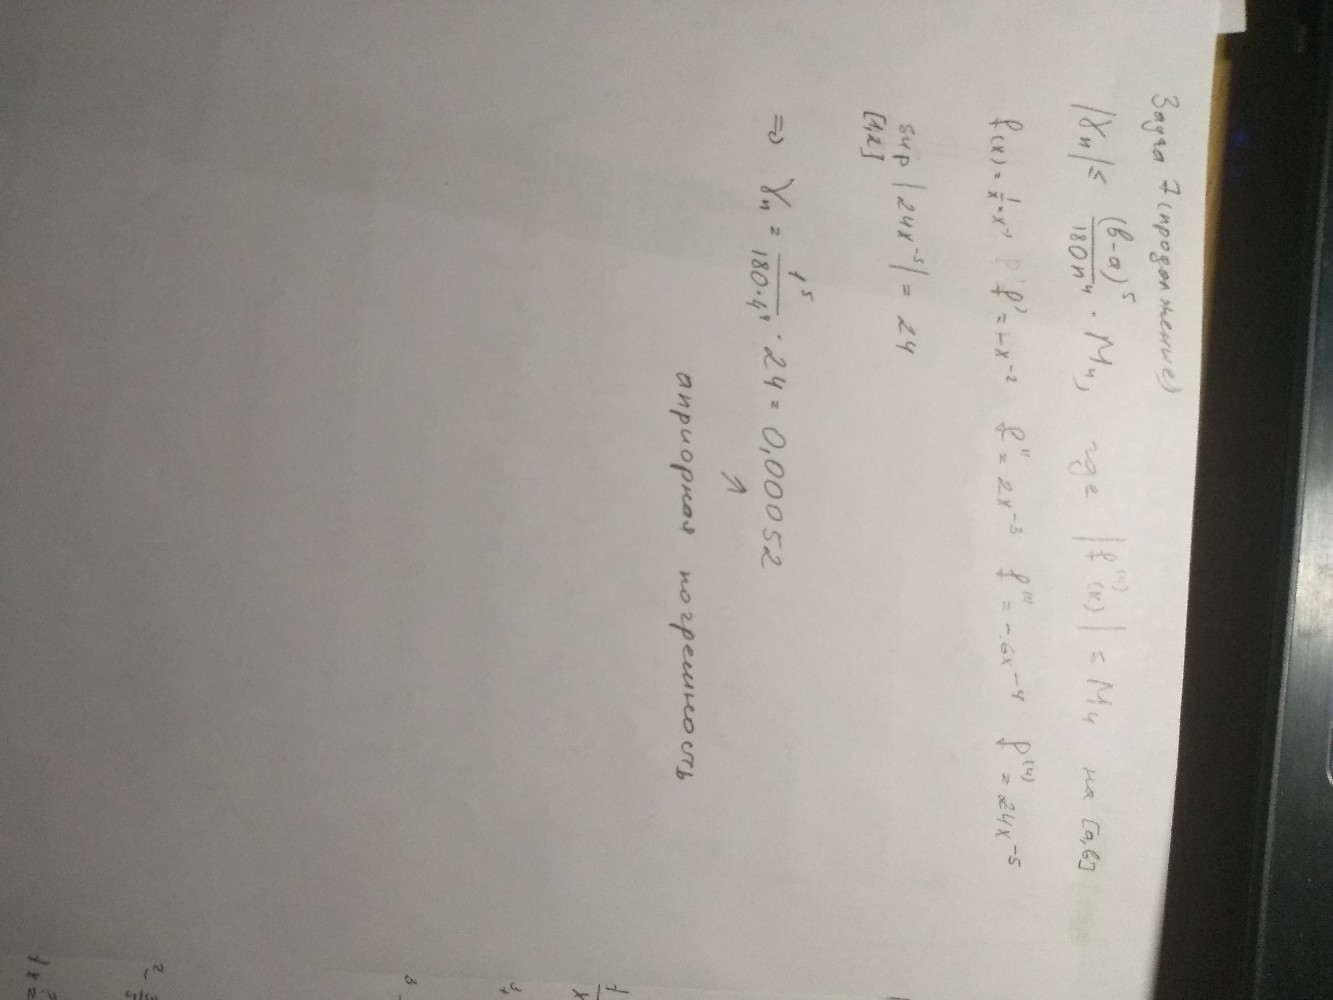 Задача 7 (продолжение)
|γn| ≤ (b-a)^5 / 180n^4 · M4, где |f^(4)(x)| ≤ M4 на [a,b]
f(x) = 1/x = x^-1 f' = -x^-2 f'' = 2x^-3 f''' = -6x^-4 f^(4) = 24x^-5
sup |24x^-5| = 24
[1,2]
=> γn = 1^5 / 180·4^4 · 24 = 0,00052
↗
априорная погрешность